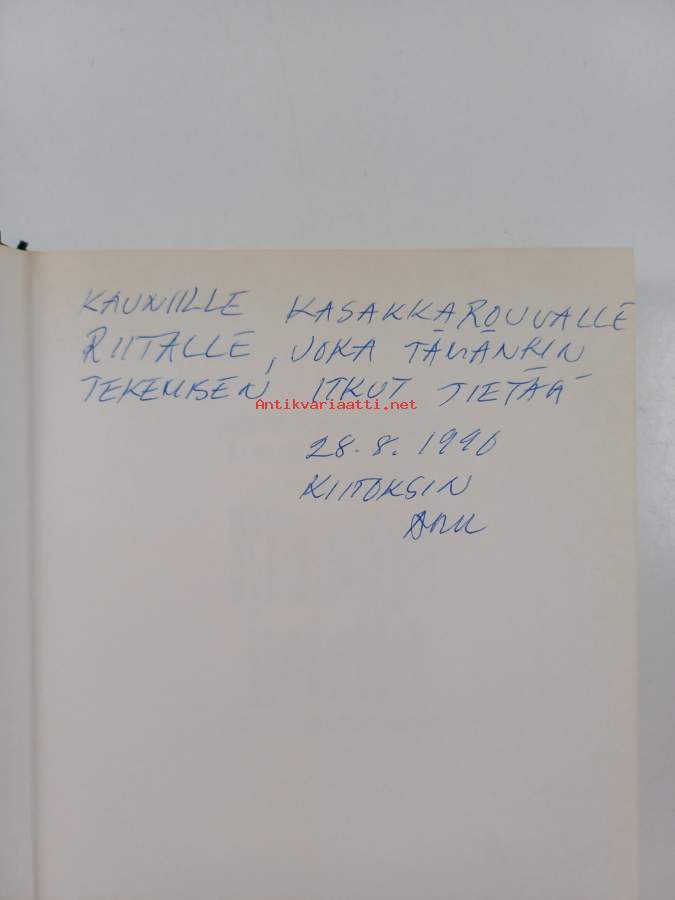 KAUNIILLE KASAKKAROUVALLE
RIITALLE, JOKA TÄMÄNKIN
TEKEMISEN ITKUT TIETÄÄ
Antikvariaatti.net
28.8.1990
KIITOKSIN